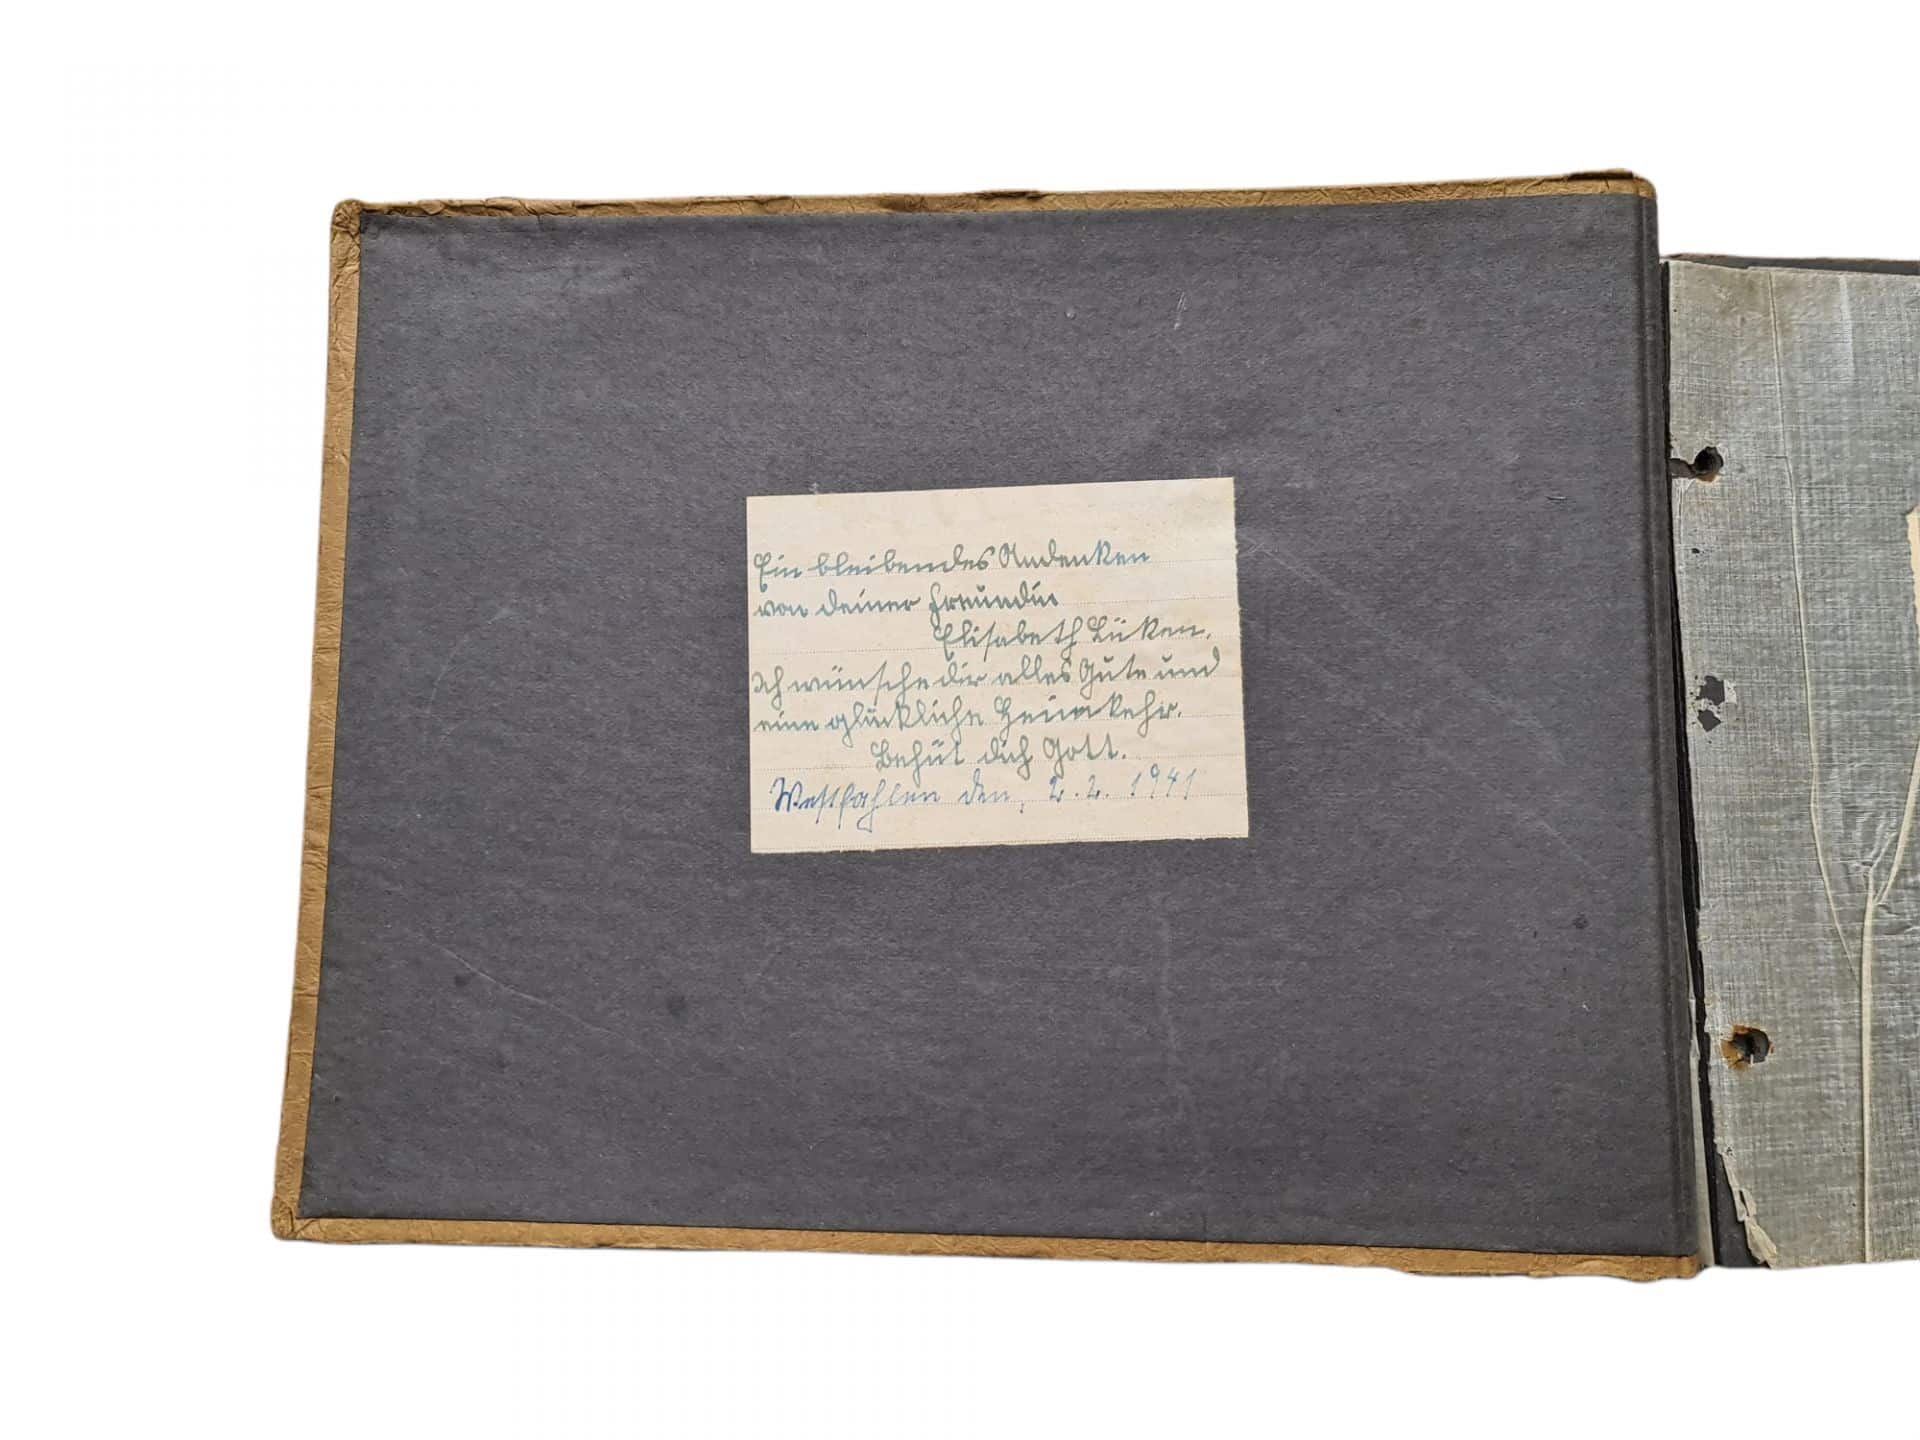 Ein bleibendes Andenken
von deiner Freundin
Elisabeth Lüken.
Ich wünsche dir alles Gute und
eine glückliche Heimkehr.
Behüt dich Gott.
Westfahlen den, 2.2. 1941